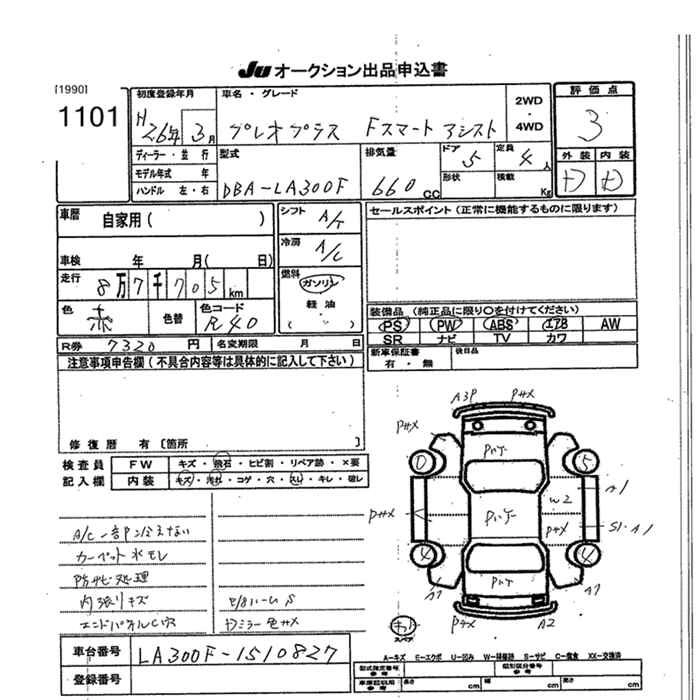 JU オークション出品申込書
[1990]
1101
初度登録年月
H26年 3月
車名・グレード
プレオプラス Fスマートアシスト
2WD
・
4WD
評価点
3
ディーラー・並行
モデル年式 年
ハンドル 左・右
型式
DBA-LA300F
排気量
660 CC
ドア
5
定員
4人
形状
積載
Kg
外装 内装
D D
車歴 自家用( )
シフト A/T
セールスポイント(正常に機能するものに限ります)
車検 年 月( 日)
冷房 A/C
走行 8万7千705km
燃料 ガソリン
軽油
( )
色 赤
色替
色コード R40
装備品(純正品に限り○を付けてください)
PS PW ABS エアB AW
SR ナビ TV カワ
R券 7320円
名変期限 月 日
新車保証書
有・無
後日品
注意事項申告欄(不具合内容等は具体的に記入して下さい)
修復歴 有〔箇所 〕
検査員
記入欄
FW キズ・飛石・ヒビ割・リペア跡・×要
内装 キズ・汚れ・コゲ・穴・スレ・キレ・破レ
A/C一部P
カーペット水モレ
防サビ処理
内張りキズ
エンドパネル穴
Dミラー色サメ
A3P Pサメ
Pサメ
0 5
A1
W2
Pサメ
Pサメ
S1・A1
4 4
A1 A1
Pサメ A2
スペア
車台番号 LA300F-1510827
登録番号
A…キズ E…エクボ U…凹み W…補修跡 S…サビ C…腐食 XX…交換済
型式指定番号
参考
類別区分番号
参考
車庫証明用
参考
長さ cm 幅 cm 高さ cm